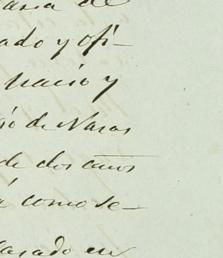 aria de
ado y ofi-
nacio y
ió de Naras
de dos años
á como se-
lasado en